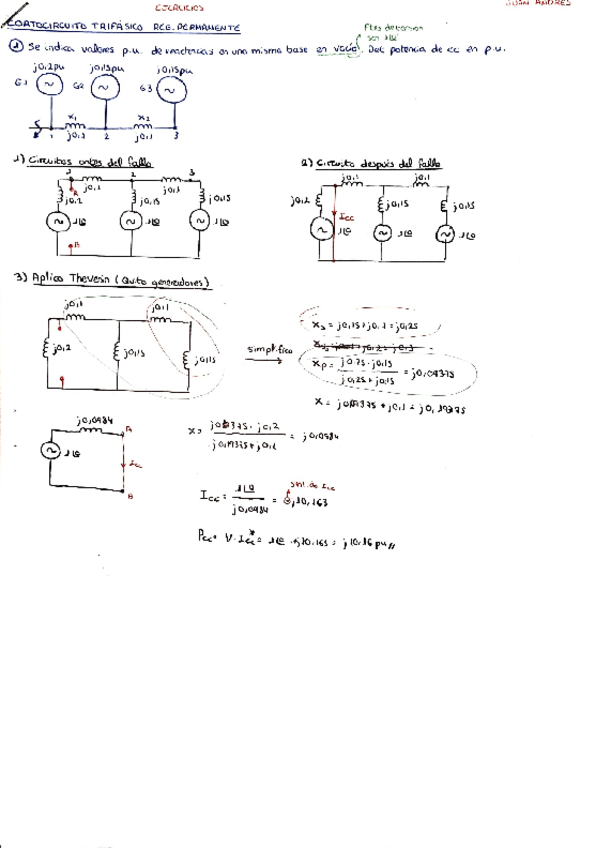 EJERCICIOS
JUAN ANDRES
CORTOCIRCUITO TRIFÁSICO RCG. PERMANENTE
① Se indica valores p.u. de reactancias en una misma base en vacío. Det potencia de cc en p.u.
son 1∠0
j0,2pu
j0,15pu
j0,15pu
G1
G2
G3
x₁
x₂
1 j0,1 2 j0,1 3
1) Circuitos antes del fallo
1 2 3
A
j0,1
j0,1
j0,2
j0,15
j0,15
1∠0
1∠0
1∠0
B
2) Circuito después del fallo
j0,1
j0,1
j0,2
Icc
j0,15
j0,15
1∠0
1∠0
1∠0
3) Aplico Thevenin (Quito generadores)
j0,1
j0,1
j0,2
j0,15
j0,15
simplifico
Xs = j0,15 + j0,1 = j0,25
Xp = j0,25 · j0,15 / j0,25 + j0,15 = j0,09375
X = j0,09375 + j0,1 = j0,19375
j0,0984
A
1∠0
Icc
B
X = j0,19375 · j0,2 / j0,19375 + j0,2 = j0,0984
Icc = 1∠0 / j0,0984 = -j10,163
Pcc = V · Icc* = 1∠0 · j10.163 = j10.16 pu //